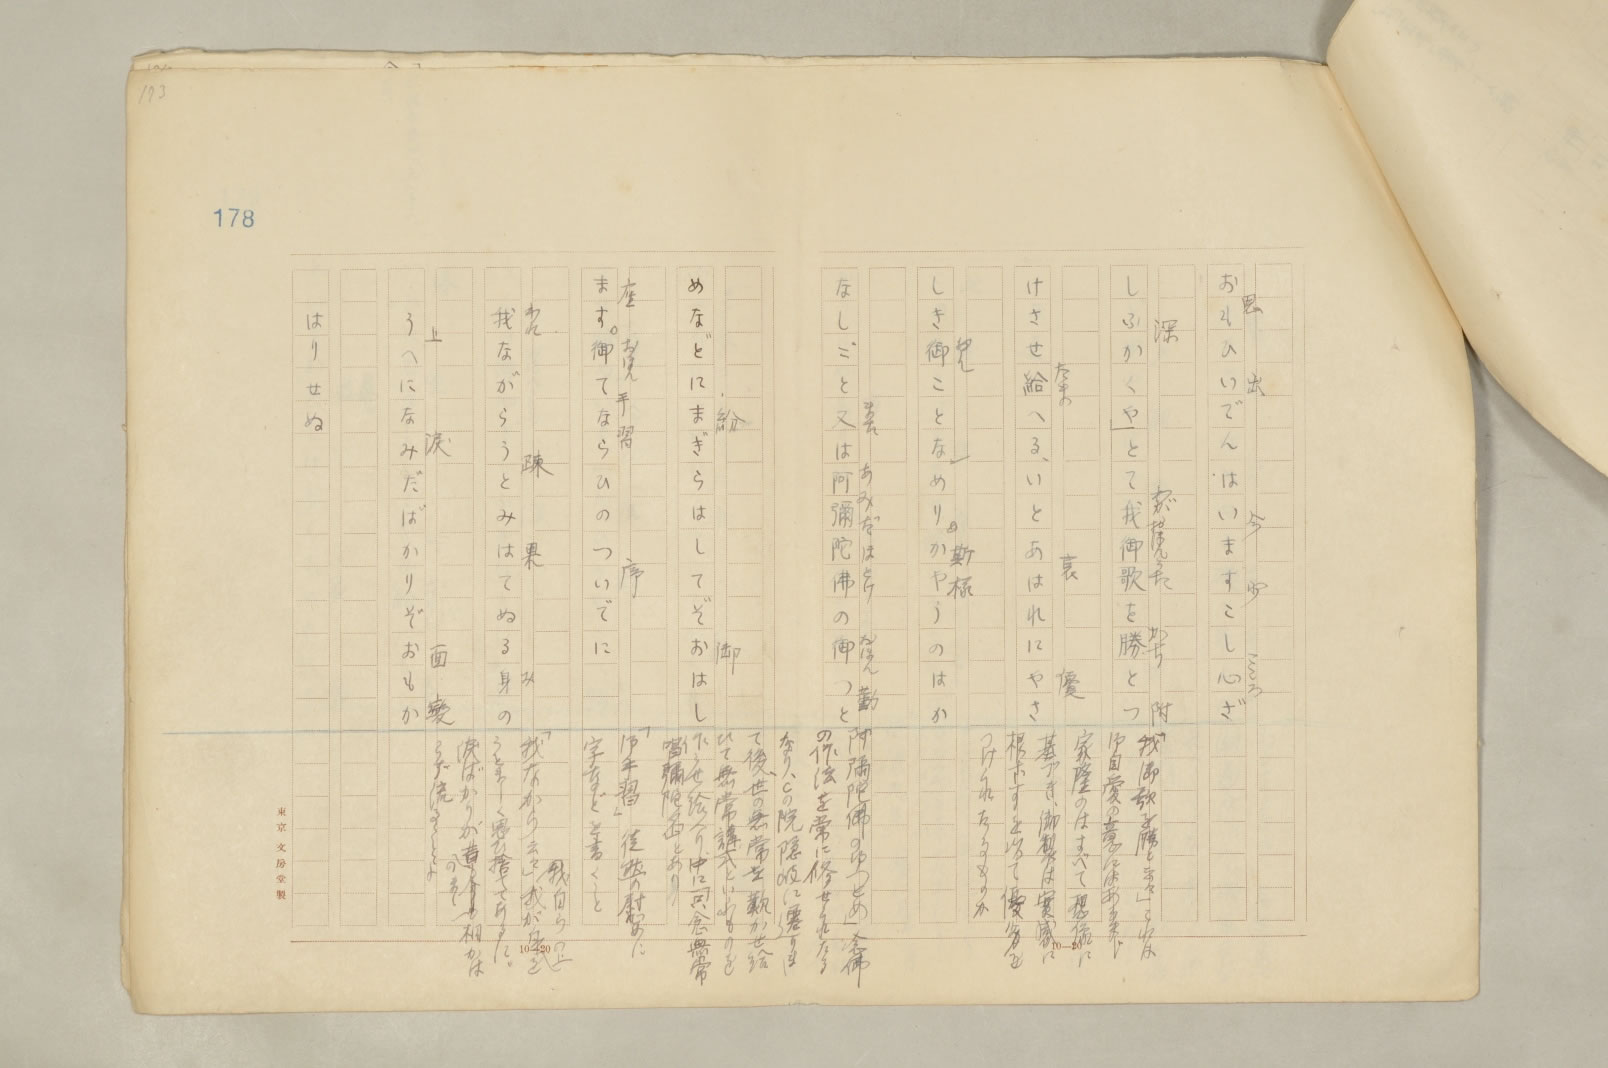 193
178
思出 今 少 こころ
おもひいでんはいますこし心ざ
深 わがおほんうた かち 附
しふかくや」とて我御歌を勝とつ
たま 哀 優
けさせ給へる、いとあはれにやさ
おん 斯様
しき御ことなめり。かやうのはか
業 あみだほとけ おほん 勤
なしごと又は阿彌陀佛の御つと
紛 御
めなどにまぎらはしてぞおはし
座 おほん 手習 序
ます。御てならひのついでに
われ 疎 果 み
我ながらうとみはてぬる身の
上 涙 面變
うへになみだばかりぞおもか
はりせぬ
「我御歌を勝と云々」これは
御自愛の意にはあらず、
家隆のはすべて想像に
基づき、御製は實感に
根ざすを以て優劣を
つけられたるものか
「阿彌陀佛の御つとめ」念佛
の作法を常に修せられたる
なり、この院隠岐に遷りまし
て後世の無常を歎かせ給
ひて無常講式といふものを
作らせ給へり、中に只念無常
唱彌陀名とあり
「御手習」徒然の慰めに
字などを書くこと
「我ながら云々」我が身を
我自らの上
うとましく思ひ捨てたるに。
涙ばかりが昔より相かは
らず流るることよ
10—20
10—20
東京文房堂製